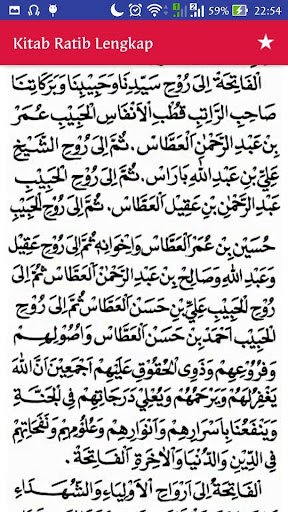 59% 22:54
Kitab Ratib Lengkap
اَلْفَاتِحَةُ اِلَى رُوْحِ سَيِّدِنَا وَحَبِيْبِنَا وَبَرَكَاتِنَا
صَاحِبِ الرَّاتِبِ قُطْبِ الْاَنْفَاسِ الْحَبِيْبِ عُمَرَ
بِنْ عَبْدِ الرَّحْمٰنِ الْعَطَّاسِ، ثُمَّ اِلَى رُوْحِ الشَّيْخِ
عَلِيِّ بْنِ عَبْدِ اللهِ بَارَاسْ، ثُمَّ اِلَى رُوْحِ الْحَبِيْبِ
عَبْدِ الرَّحْمٰنِ بْنِ عَقِيْلِ الْعَطَّاسِ، ثُمَّ اِلَى رُوْحِ الْحَبِيْبِ
حُسَيْنِ بْنِ عُمَرَ الْعَطَّاسِ وَاِخْوَانِهِ ثُمَّ اِلَى رُوْحِ عَقِيْل
وَعَبْدِ اللهِ وَصَالِحِ بْنِ عَبْدِ الرَّحْمٰنِ الْعَطَّاسِ ثُمَّ اِلَى
رُوْحِ الْحَبِيْبِ عَلِيِّ بْنِ حَسَنِ الْعَطَّاسِ ثُمَّ اِلَى رُوْحِ
الْحَبِيْبِ اَحْمَدَ بْنِ حَسَنِ الْعَطَّاسِ وَاُصُوْلِهِمْ
وَفُرُوْعِهِمْ وَذَوِى الْحُقُوْقِ عَلَيْهِمْ اَجْمَعِيْنَ اَنَّ اللهَ
يَغْفِرُلَهُمْ وَيَرْحَمُهُمْ وَيُعْلِيْ دَرَجَاتِهِمْ فِى الْجَنَّةِ
وَيَنْفَعُنَا بِاَسْرَارِهِمْ وَاَنْوَارِهِمْ وَعُلُوْمِهِمْ وَنَفَحَاتِهِمْ
فِى الدِّيْنِ وَالدُّنْيَا وَالْاٰخِرَةِ اَلْفَاتِحَةْ.
اَلْفَاتِحَةُ اِلَى اَرْوَاحِ الْاَوْلِيَاءِ وَالشُّهَدَاءِ